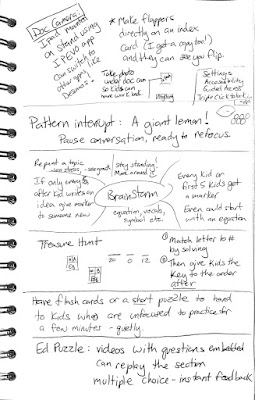 Doc Camera!
iPad mounted
on stand using
IPEVO app
Can switch to
other apps like
Desmos
* Make flappers
directly on an index
card (I get a copy too!)
and they can see you flip.
Take photo
under doc cam
so kids can
have work back
Settings
Accessibility
Guided Access
Triple Click to lock
Pattern interrupt: A giant lemon!
Pause conversation, ready to refocus.
Repeat a topic
Stay standing!
Move around
If only
after kid writes an
idea give marker
to someone new
BrainStorm
equation, vocab,
symbol etc.
Every kid or
first 5 kids get
a marker
Even could start
with an equation
Treasure Hunt
20 0 12
① Match letter to #
by solving
② Then give kids the
Key to the order
after
Have flash cards or a short puzzle to hand
to kids who are unfocused to practice for
a few minutes - quietly.
Ed Puzzle: videos with questions embedded
can replay the section
multiple choice - instant feedback